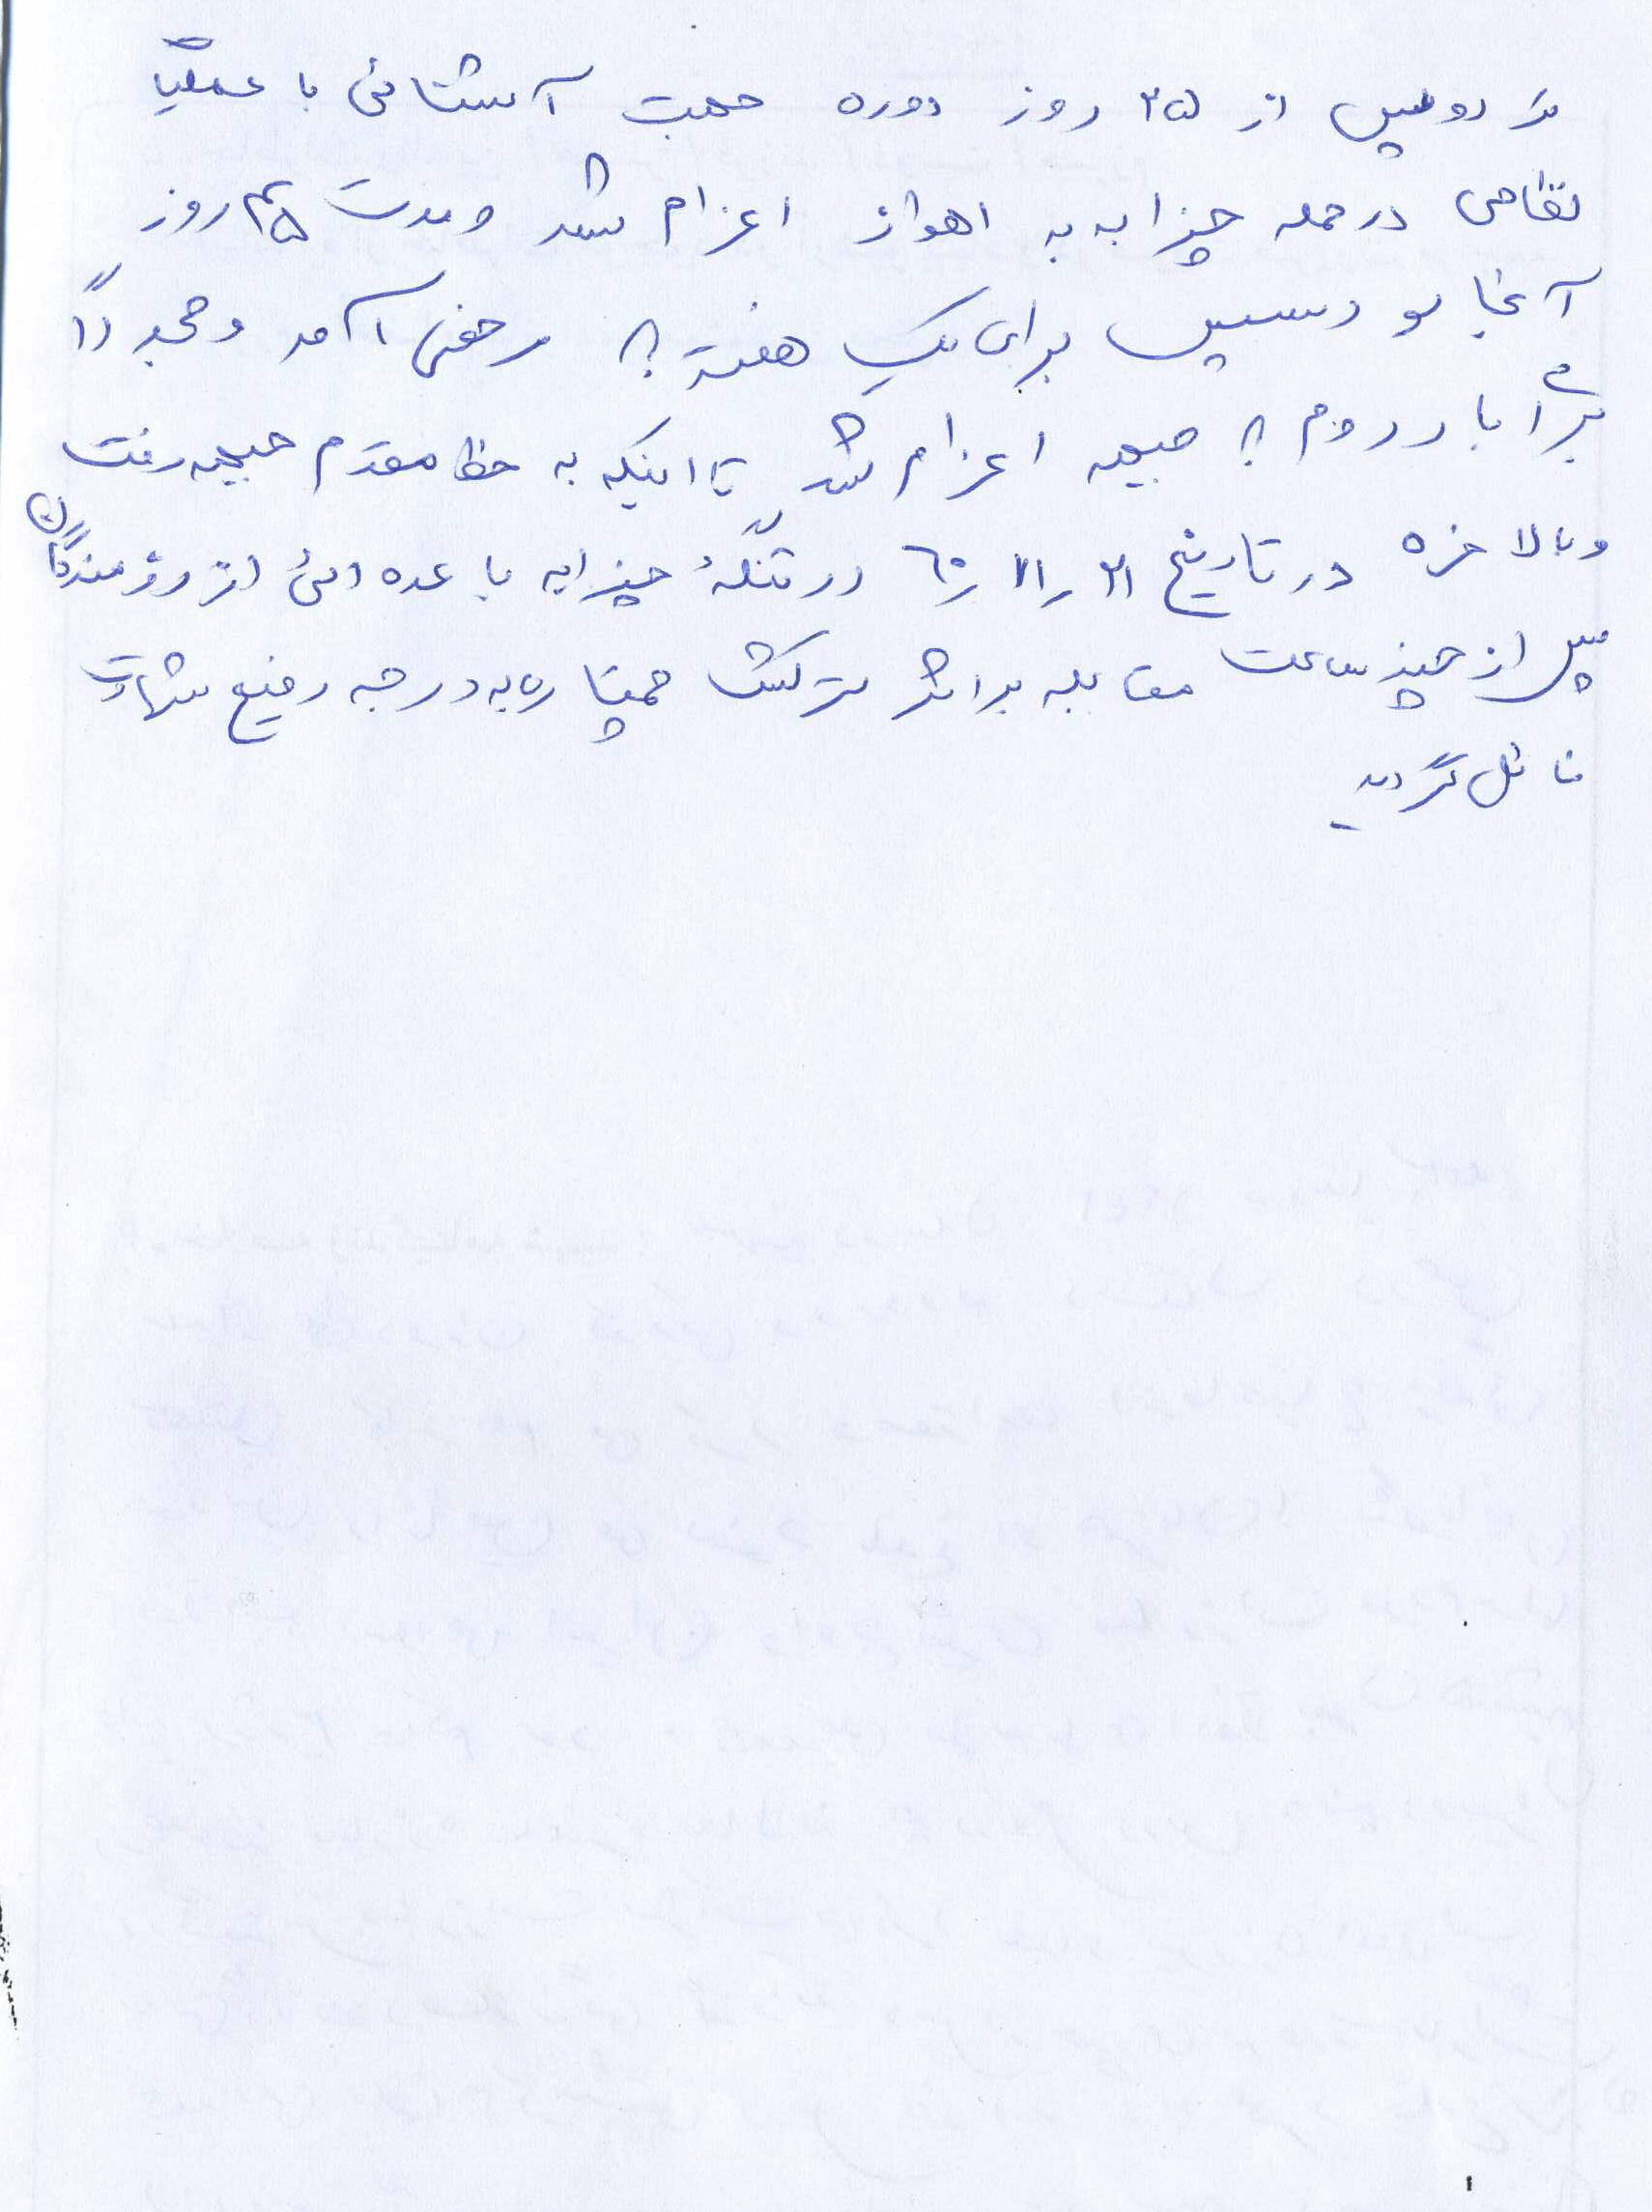 شد و پس از ۲۵ روز دوره جهت آشنائی با عملیات
نظامی در حمله چزابه به اهواز اعزام شد و مدت ۴۵ روز
آنجا بود سپس برای یک هفته به مرخصی آمد و مجدداً
برای بار دوم به جبهه اعزام شد تا اینکه به خط مقدم جبهه رفت
و بالاخره در تاریخ ۲۱ ر ۱۱ ر ۶۰ در تنگهٔ چزابه با عده ائی از رزمندگان
پس از چند ساعت مقابله بر اثر ترکش خمپاره به درجه رفیع شهادت
نائل گردید